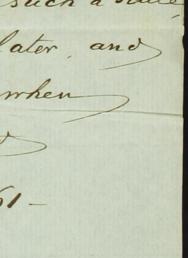 such a
later, and
when
61-